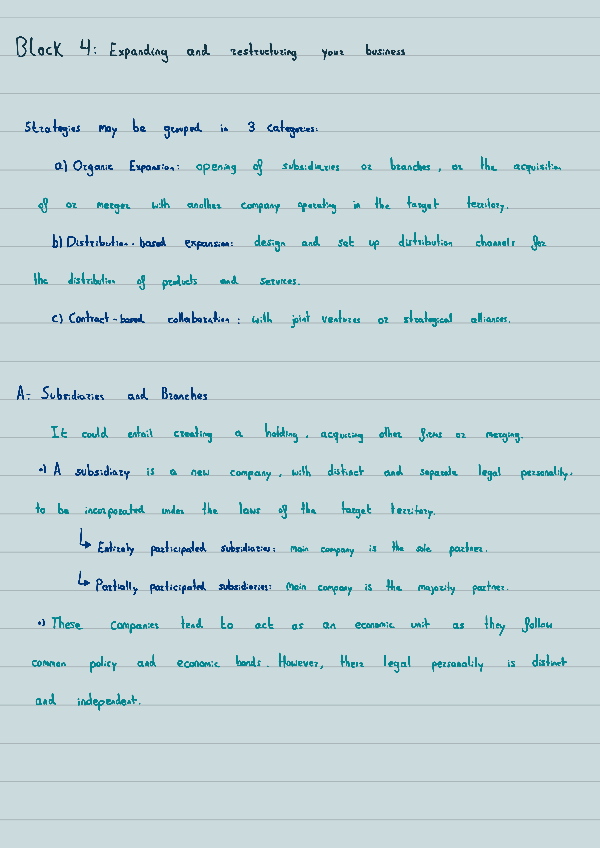 Block 4: Expanding and restructuring your business
Strategies may be grouped in 3 categories:
a) Organic Expansion: opening of subsidiaries or branches, or the acquisition
of or merger with another company operating in the target territory.
b) Distribution-based expansion: design and set up distribution channels for
the distribution of products and services.
c) Contract-based collaboration: with joint ventures or strategical alliances.
A: Subsidiaries and Branches
It could entail creating a holding, acquiring other firms or merging.
•) A subsidiary is a new company, with distinct and separate legal personality,
to be incorporated under the laws of the target territory.
↳ Entirely participated subsidiaries: main company is the sole partner.
↳ Partially participated subsidiaries: main company is the majority partner.
•) These companies tend to act as an economic unit as they follow
common policy and economic bonds. However, their legal personality is distinct
and independent.